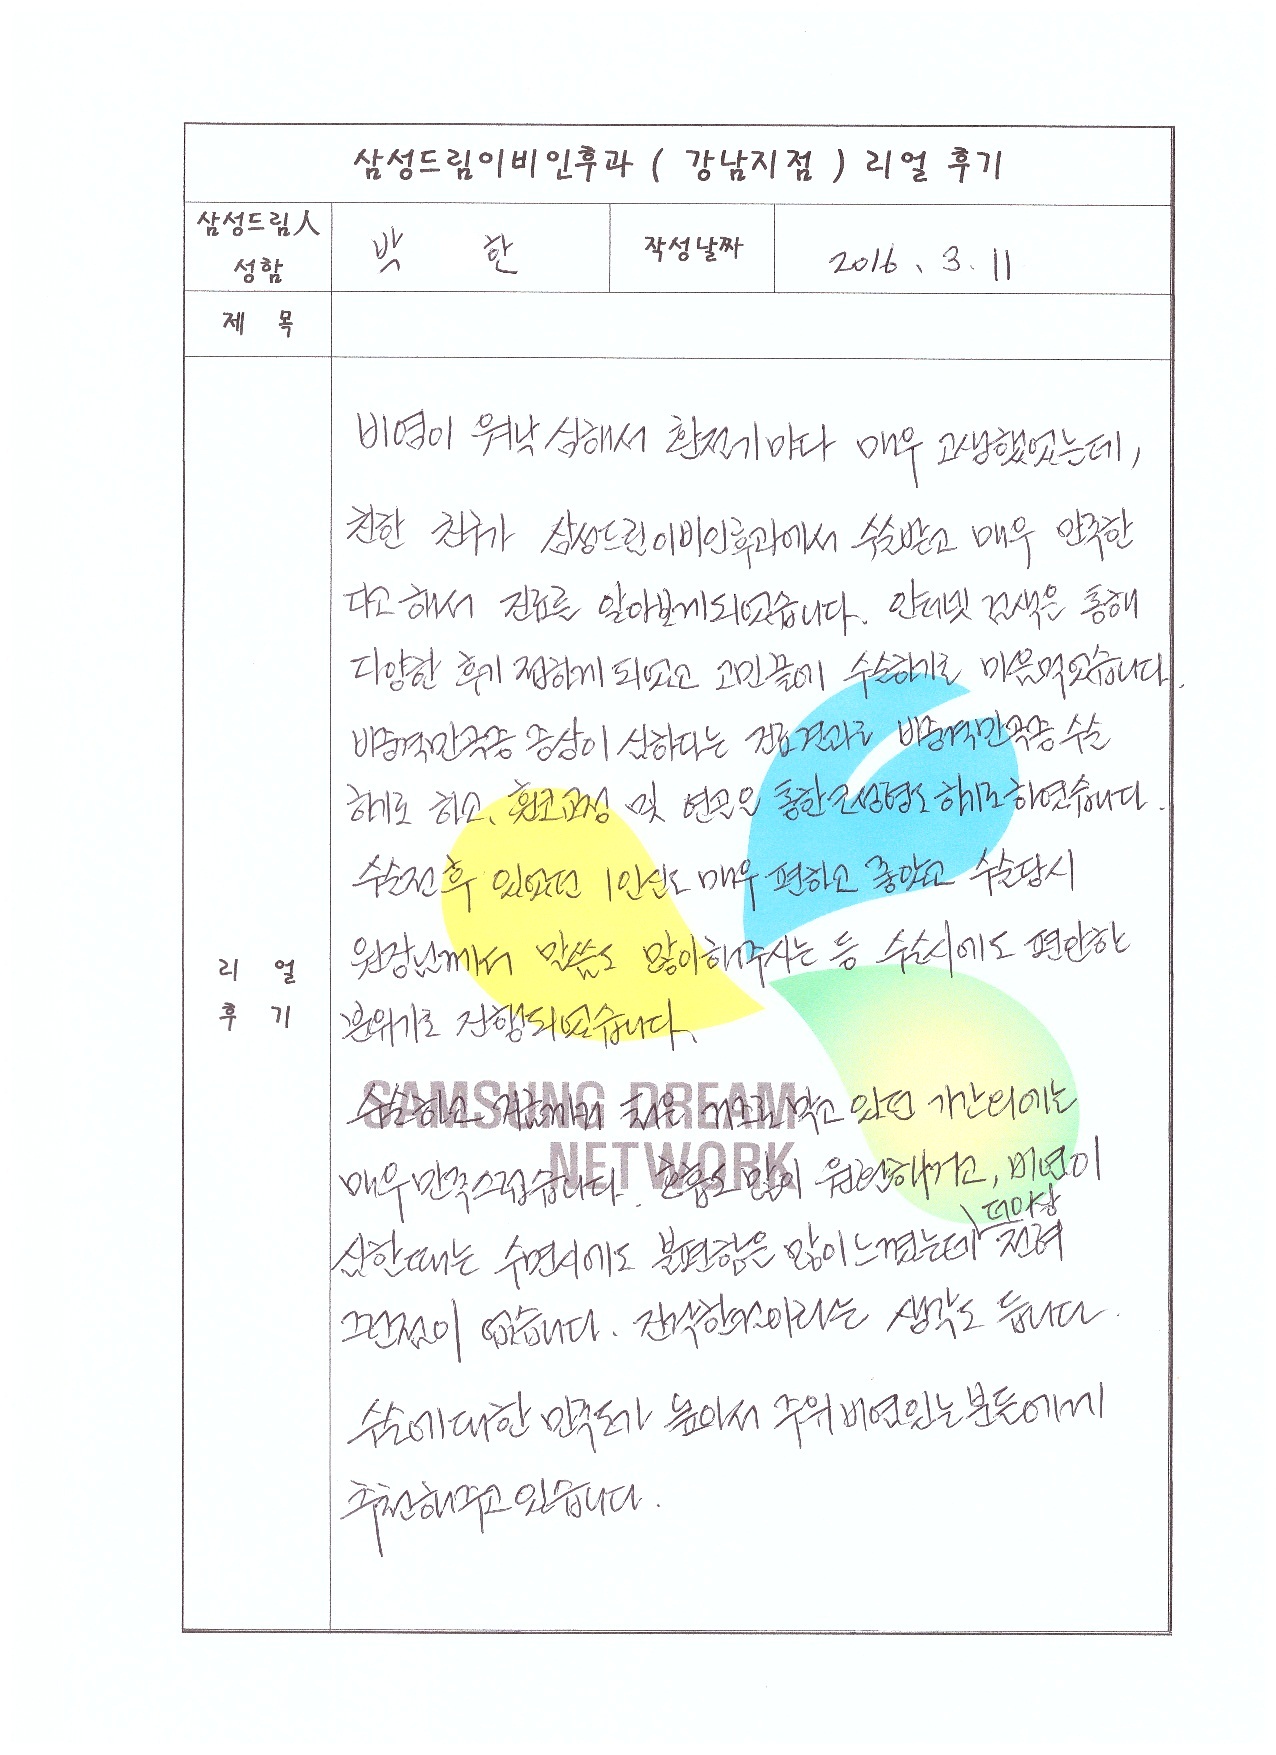 삼성드림이비인후과 ( 강남지점 ) 리얼 후기
삼성드림人 성함
박 한
작성날짜
2016. 3. 11
제 목
리 얼 후 기
비염이 워낙 심해서 환절기마다 매우 고생했었는데,
친한 친구가 삼성드림이비인후과에서 수술받고 매우 만족한
다고 해서 진료를 알아보게되었습니다. 인터넷 검색을 통해
다양한 후기 접하게 되었고 고민끝에 수술하기로 마음먹었습니다.
비중격만곡증 증상이 심하다는 진료결과로 비중격만곡증 수술
하기로 하고, 휜코교정 및 연골을 통한 코성형도 하기로 하였습니다.
수술전후 있었던 1인실도 매우 편하고 좋았고 수술당시
원장님께서 말씀도 많이해주시는 등 수술시에도 편안한
분위기로 진행되었습니다.
수술하고 지금까지 코로 막고 있던 기간외에는
매우만족스럽습니다. 호흡도 많이 원활해지고, 비염이
심한때는 수면시에도 불편함을 많이느꼈는데 더이상 전혀
그런점이 없습니다. 진작할것이라는 생각도 듭니다.
수술에대한 만족도가 높아서 주위 비염있는분들에게
추천해주고있습니다.
SAMSUNG DREAM
NETWORK